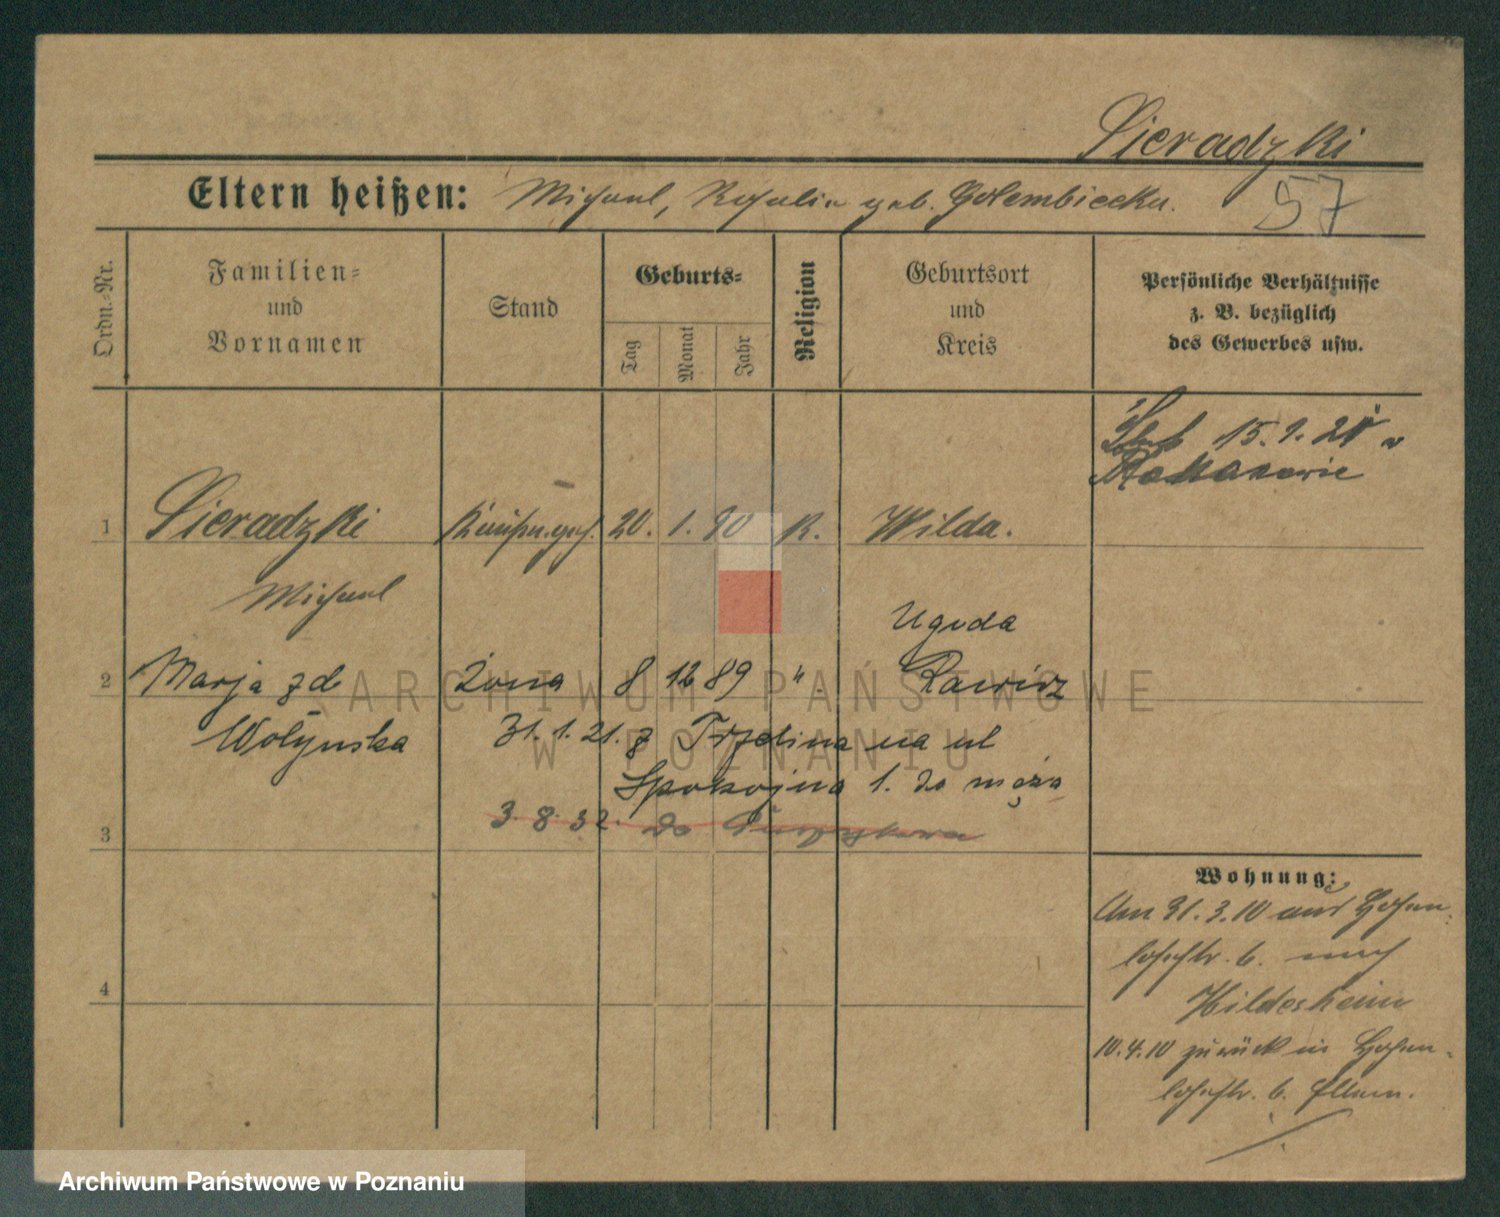 Sieradzki
Eltern heißen: Michael, Rosalia geb. Golembiecka.
57
Ordn.-Nr.
Familien-
und
Vornamen
Stand
Geburts-
Tag
Monat
Jahr
Religion
Geburtsort
und
Kreis
Persönliche Verhältnisse
z. B. bezüglich
des Gewerbes usw.
Ślub 15.9.20 w
1 Sieradzki 20. 1. 90 K. Wilda.
Michael
Ugoda
2 Marja zd żona 8 12 89 ". Rawicz
Wołyńska 31.1.21. z na ul
Spokojna 1. do męża
3 3.8.32. do
4
Wohnung:
Am 31.3.10 aus Hohen-
lohestr. 6. nach
Hildesheim
10.4.10 zurück in Hohen-
lohestr. 6. Eltern.
ARCHIWUM PAŃSTWOWE
W POZNANIU
Archiwum Państwowe w Poznaniu